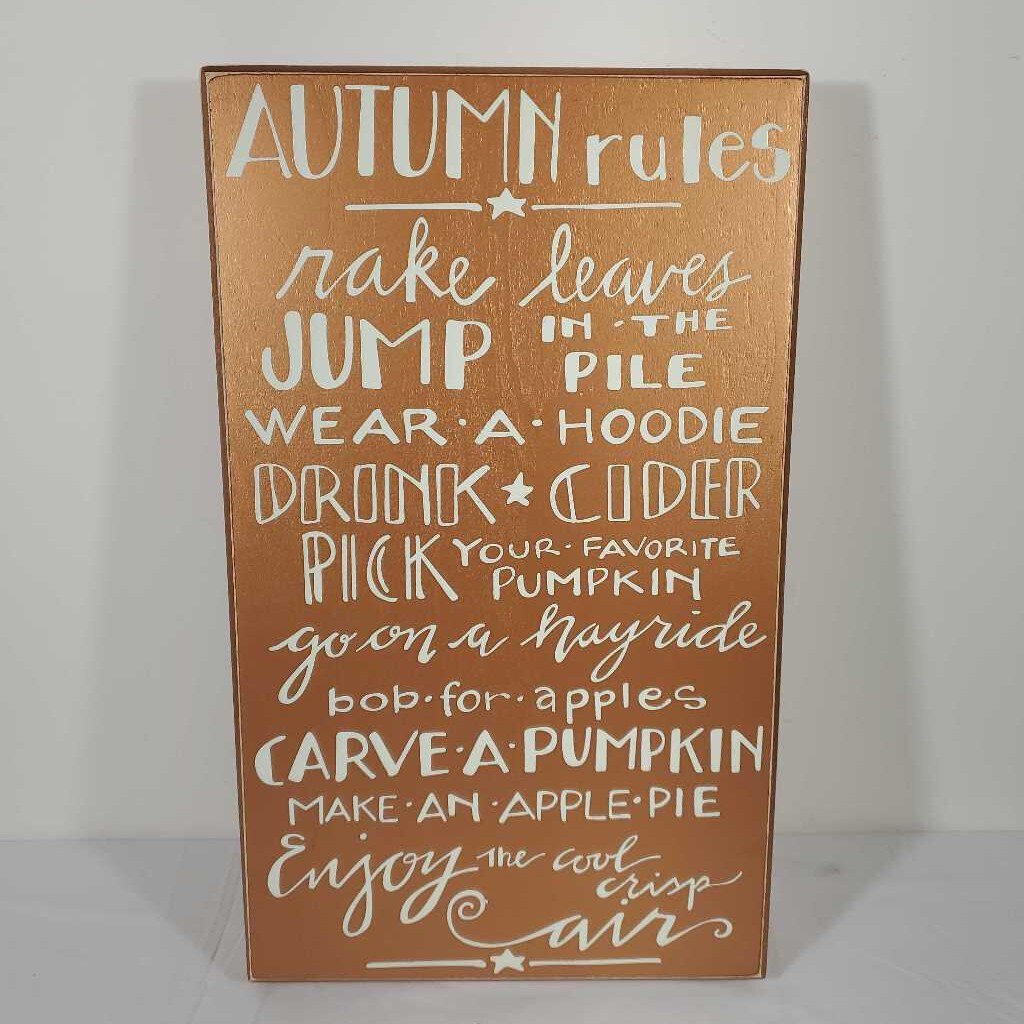 AUTUMN rules
rake leaves
JUMP IN·THE
PILE
WEAR·A·HOODIE
DRINK CIDER
PICK YOUR·FAVORITE
PUMPKIN
go on a hayride
bob·for·apples
CARVE·A·PUMPKIN
MAKE·AN·APPLE·PIE
Enjoy the cool
crisp
air